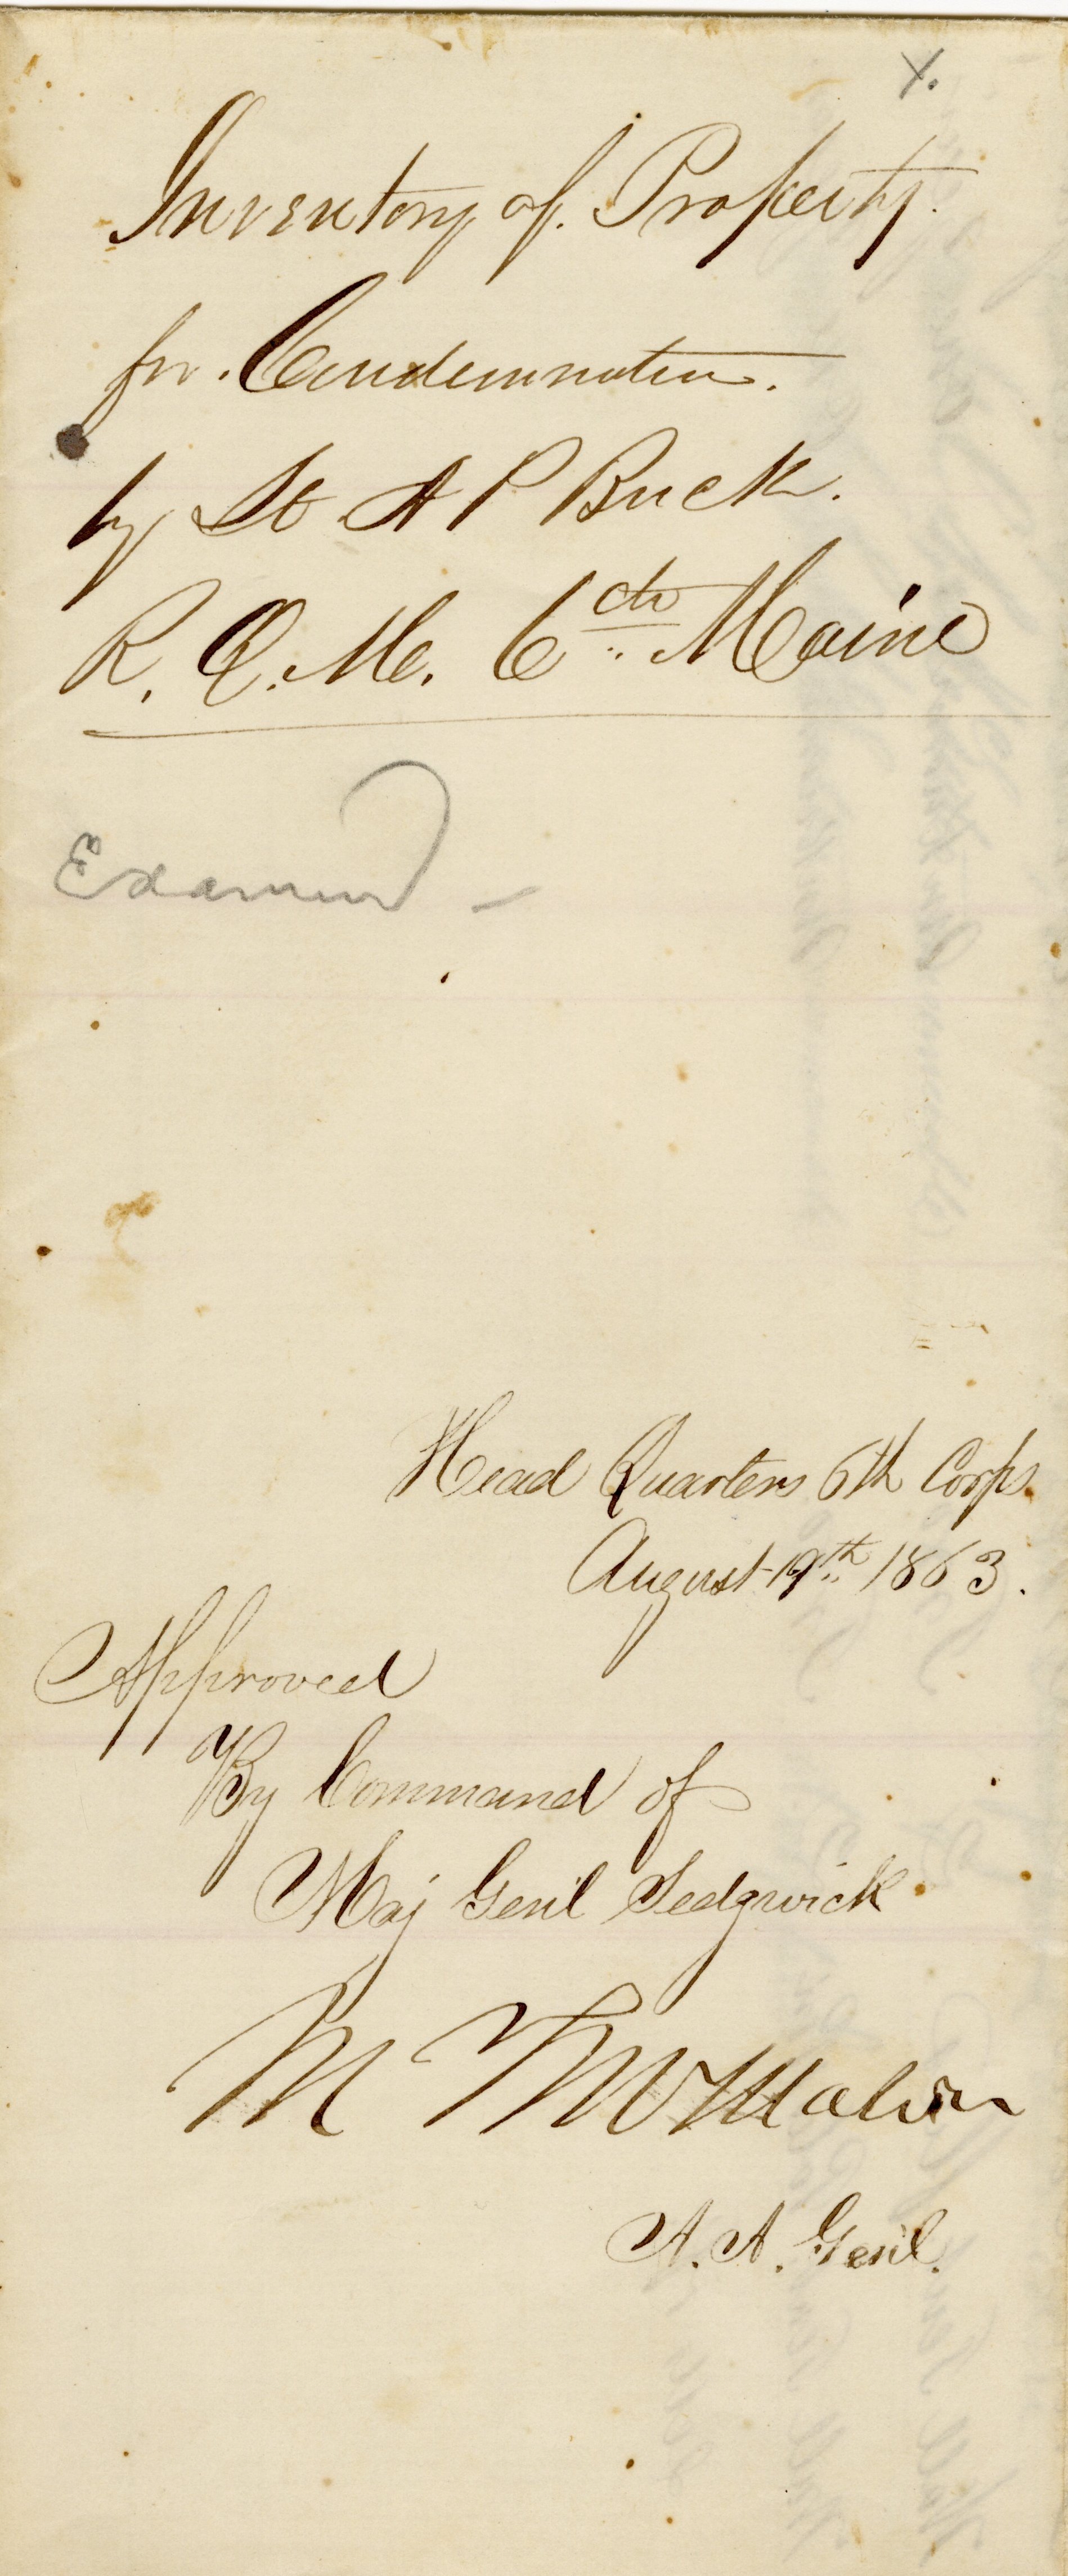 X.
Inventory of. Property.
for. Condemnation.
by Lt A P Buck.
R. Q. M. 6th Maine
Examined –
Head Quarters 6th Corps.
August 19th 1863.
Approved
By Command of
Maj Genl Sedgwick
M T McMahon
A. A. Genl.